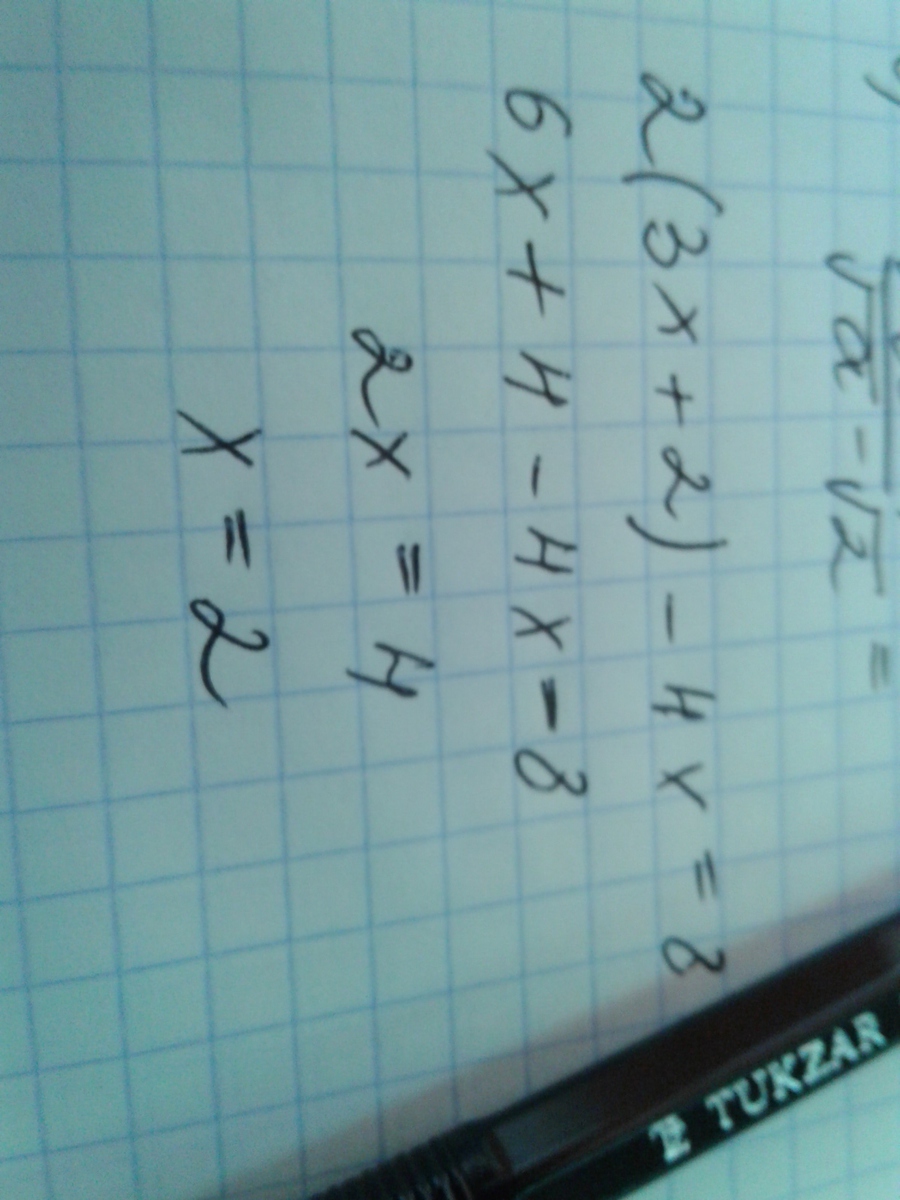 √x - √2 =
2(3x+2) - 4x = 8
6x + 4 - 4x - 8
2x = 4
x = 2
TUKZAR